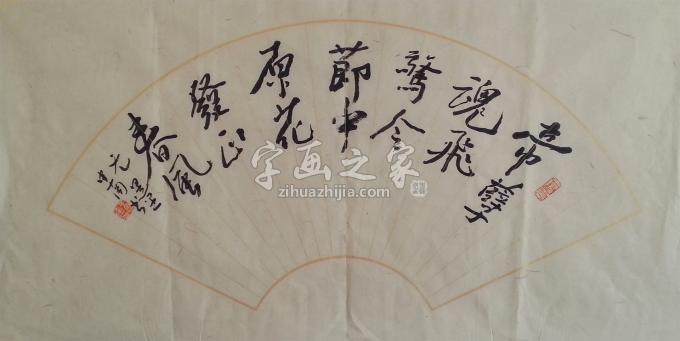 帝孽
魂飛
驚令
節中
原花
發正
春風
字画之家
zihuazhijia.com